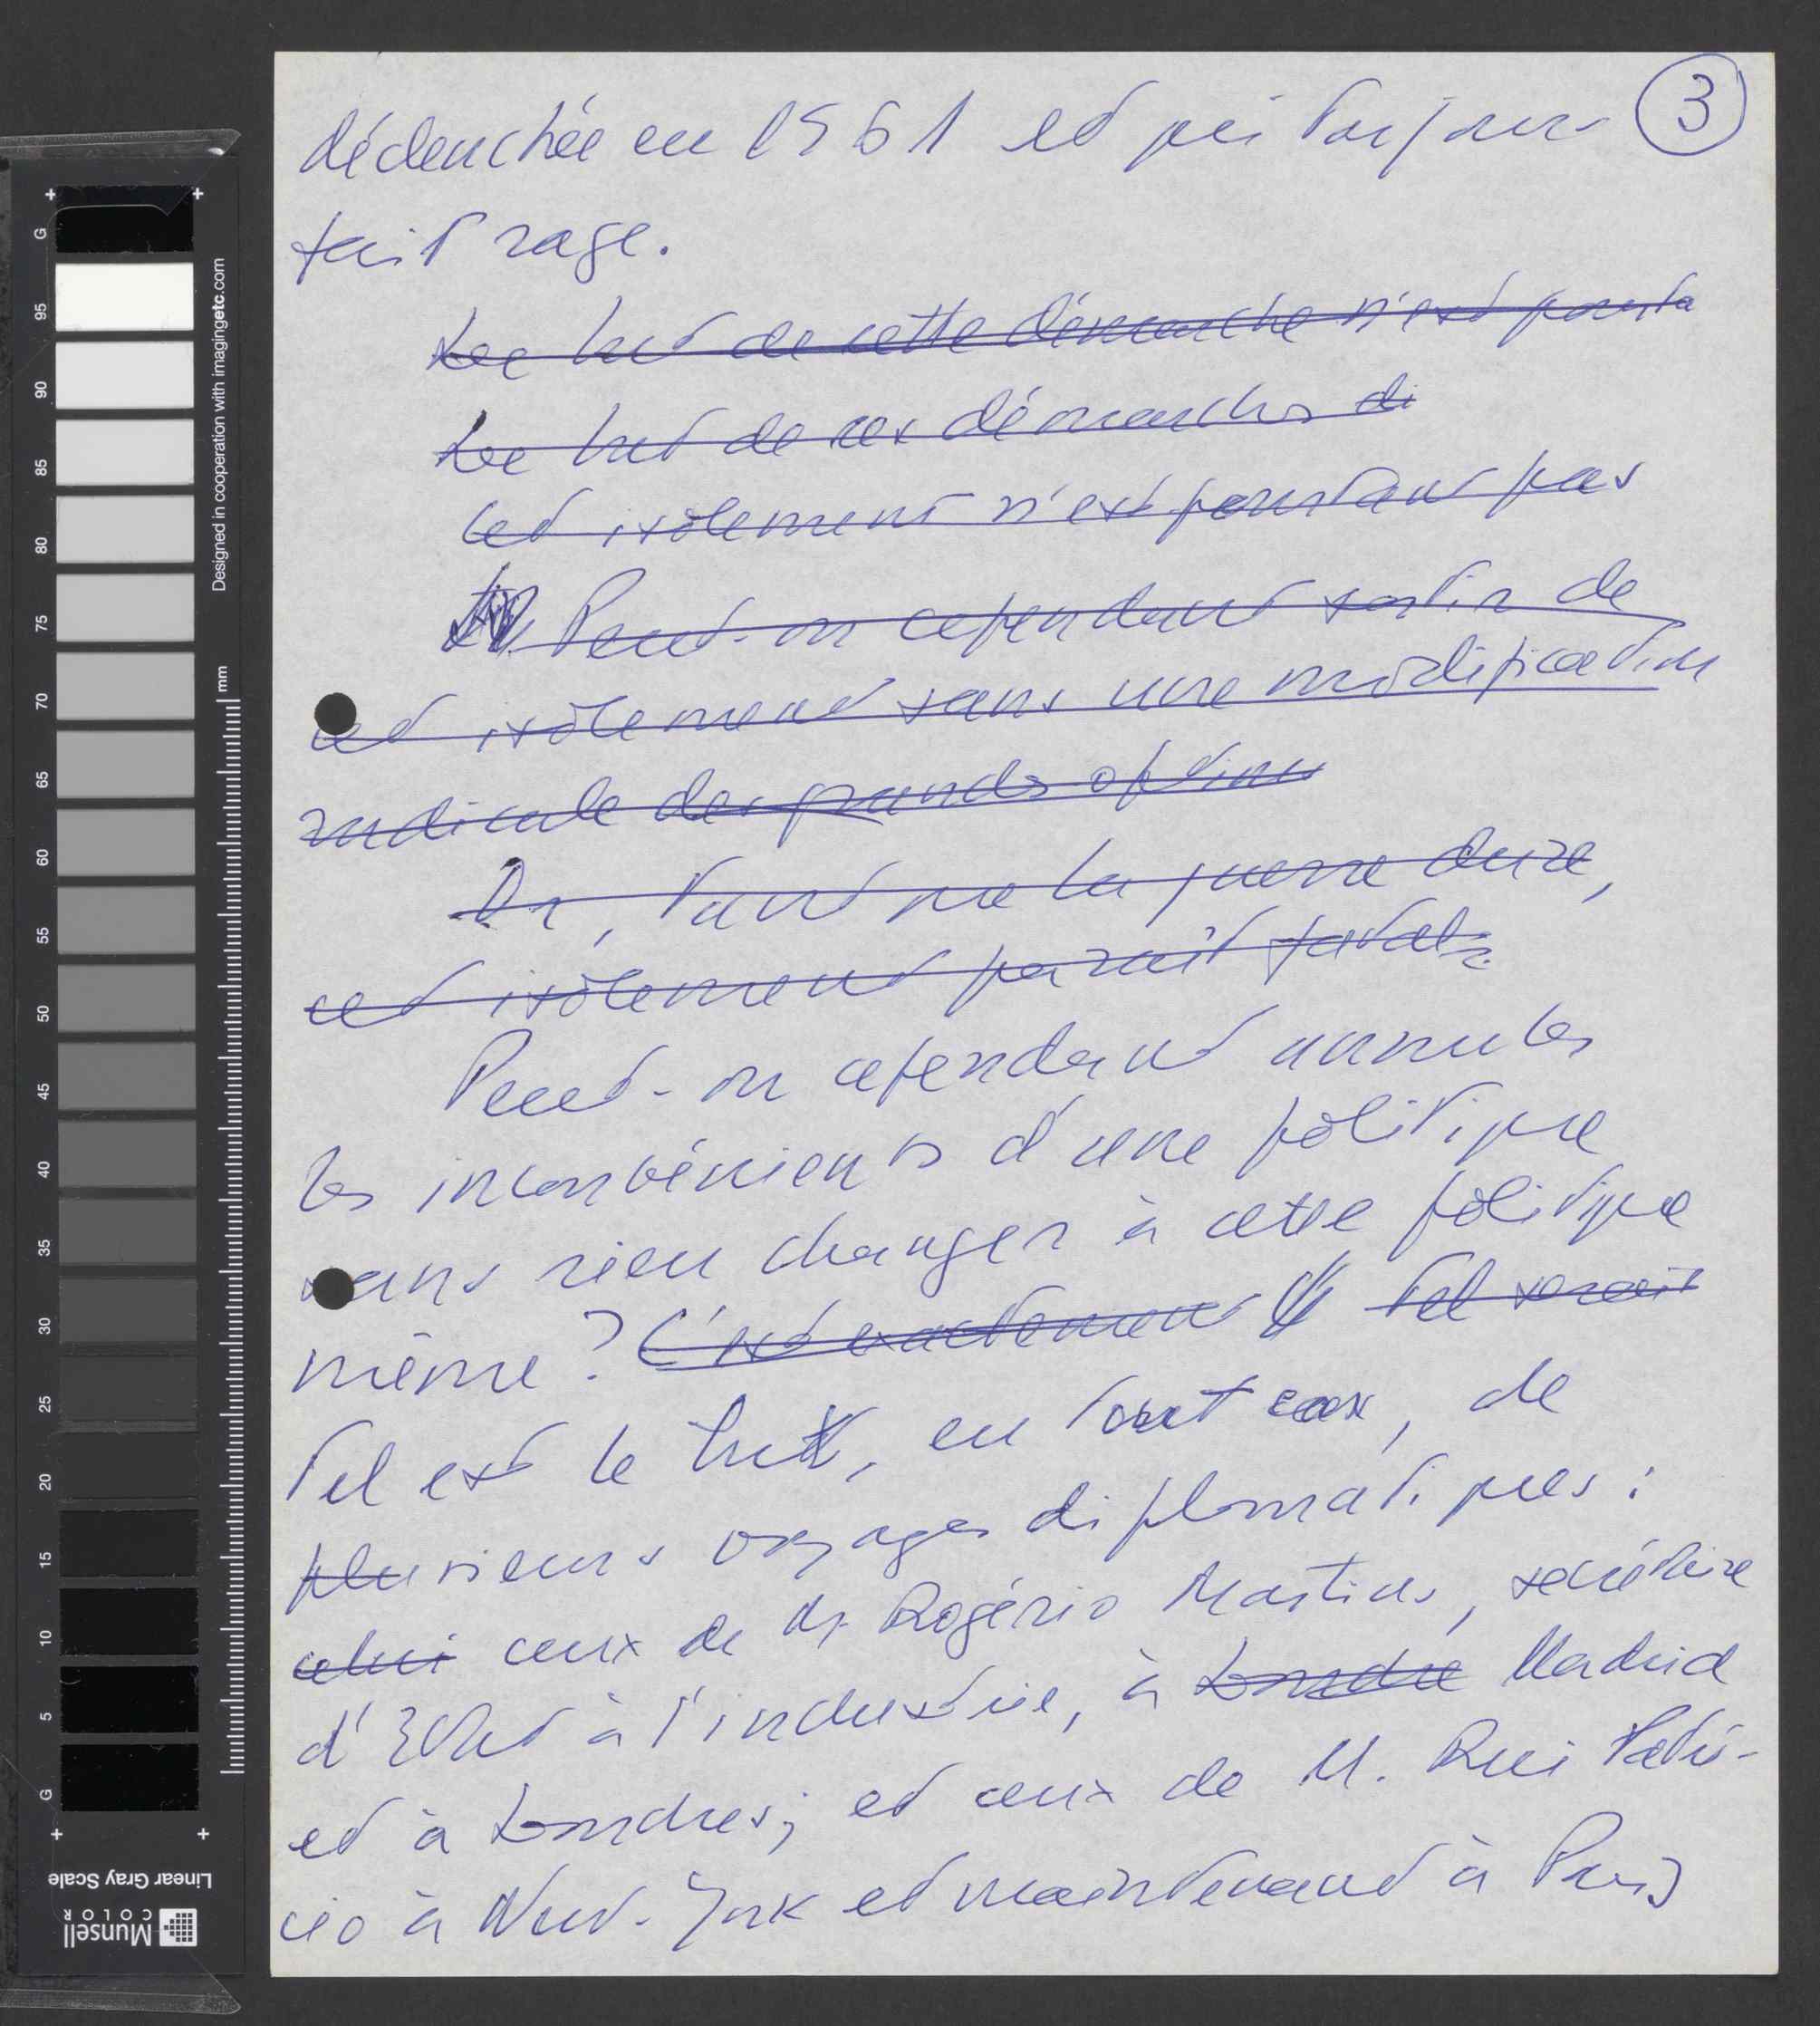 3
déclenchée en 1961 et qui toujours
fait rage.
Le but de cette démarche n'est pourta
Le but de ces démarches di
Cet isolement n'est pourtant pas
Peut-on cependant sortir de
cet isolement sans une modification
radicale des grands options
Or, tant que la guerre dure,
cet isolement paraît fatal.
Peut-on cependant annuler
les inconvénients d'une politique
sans rien changer à cette politique
même ? C'est exactement Tel serait
Tel est le but, en tout cas, de
plusieurs voyages diplomatiques :
celui ceux de M. Rogério Martins, secrétaire
d'Etat à l'industrie, à Londre Madrid
et à Londres ; et ceux de M. Rui Patri-
cio à New-York et maintenant à Paris
G
95
90
85
80
75
70
65
60
55
50
45
40
35
30
25
20
15
10
5
G
mm
Designed in cooperation with imagingetc.com
Munsell
COLOR
Linear Gray Scale